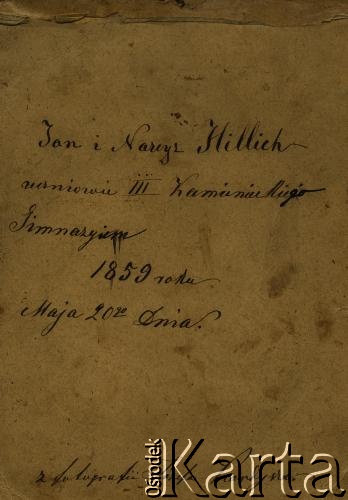 Jan i Narcyz Hillich
uczniowie III Kamienieckiego
Gimnazyum
1859 roku.
Maja 20go Dnia.
z fotografii
Ośrodek Karta